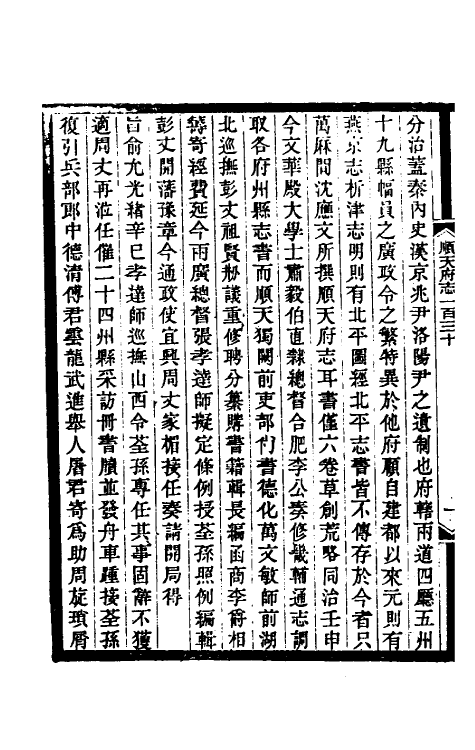 順天府志一百三十
分治蓋秦內史漢京兆尹洛陽尹之遺制也府轄兩道四廳五州
十九縣幅員之廣政令之繁特異於他府顧自建都以來元則有
燕京志析津志明則有北平圖經北平志書皆不傳存於今者只
萬麻間沈應文所撰順天府志耳書僅六卷草創荒略同治壬申
今文華殿大學士肅毅伯直隸總督合肥李公奏修畿輔通志調
取各府州縣志書而順天獨闕前吏部尙書德化萬文敏師前湖
北巡撫彭丈祖賢剏議重修聘分纂購書籍輯長編函商李爵相
籌寄經費延今兩廣總督張孝達師擬定條例授荃孫照例編輯
彭丈開藩豫章今通政使宜興周丈家楣接任奏請開局得
旨俞允光緒辛巳孝達師巡撫山西令荃孫專任其事固辭不獲
適周丈再涖任催二十四州縣采訪冊書牘並發舟車踵接荃孫
復引兵部郎中德清傅君雲龍武進舉人屠君寄爲助周旋瑣屑